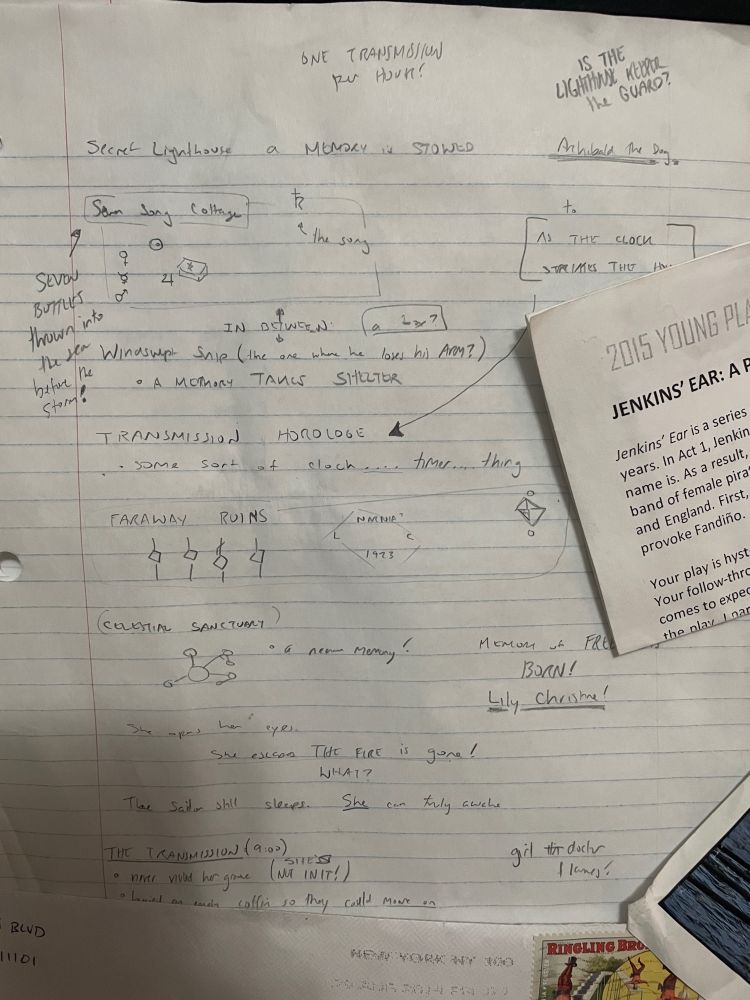 ONE TRANSMISSION
per HOUR!
IS THE
LIGHTHOUSE KEEPER
the GUARD?
Secret Lighthouse a MEMORY is STOWED
Archibald The Dog
Song Cottage
♄
the song
to
AS THE CLOCK
STRIKES THE
♀ ☉
☿ ♃
♂
SEVEN
BOTTLES
thrown into
the sea
before the
storm!
IN BETWEEN:
Windswept Ship (the one where he loses his Army?)
• A MEMORY TAKES SHELTER
TRANSMISSION HOROLOGE
• some sort of clock.... timer... thing
FARAWAY RUINS
NARNIA?
L C
1923
(CELESTIAL SANCTUARY)
• a new memory!
MEMORY
BORN!
Lily Christine!
She opens her eyes.
She escapes THE FIRE is gone!
WHAT?
The Sailor still sleeps. She can truly awake
THE TRANSMISSION (9:00)
• never visited her grave (SHE'S NOT IN IT!)
• on each coffin so they could move on
girl doctor
2015 YOUNG PLA
JENKINS' EAR: A P
Jenkins' Ear is a series
years. In Act 1, Jenkin
name is. As a result,
band of female pira
and England. First,
provoke Fandiño.
Your play is hyst
Your follow-thro
comes to expec
the play. I
BLVD
11101
RINGLING BRO